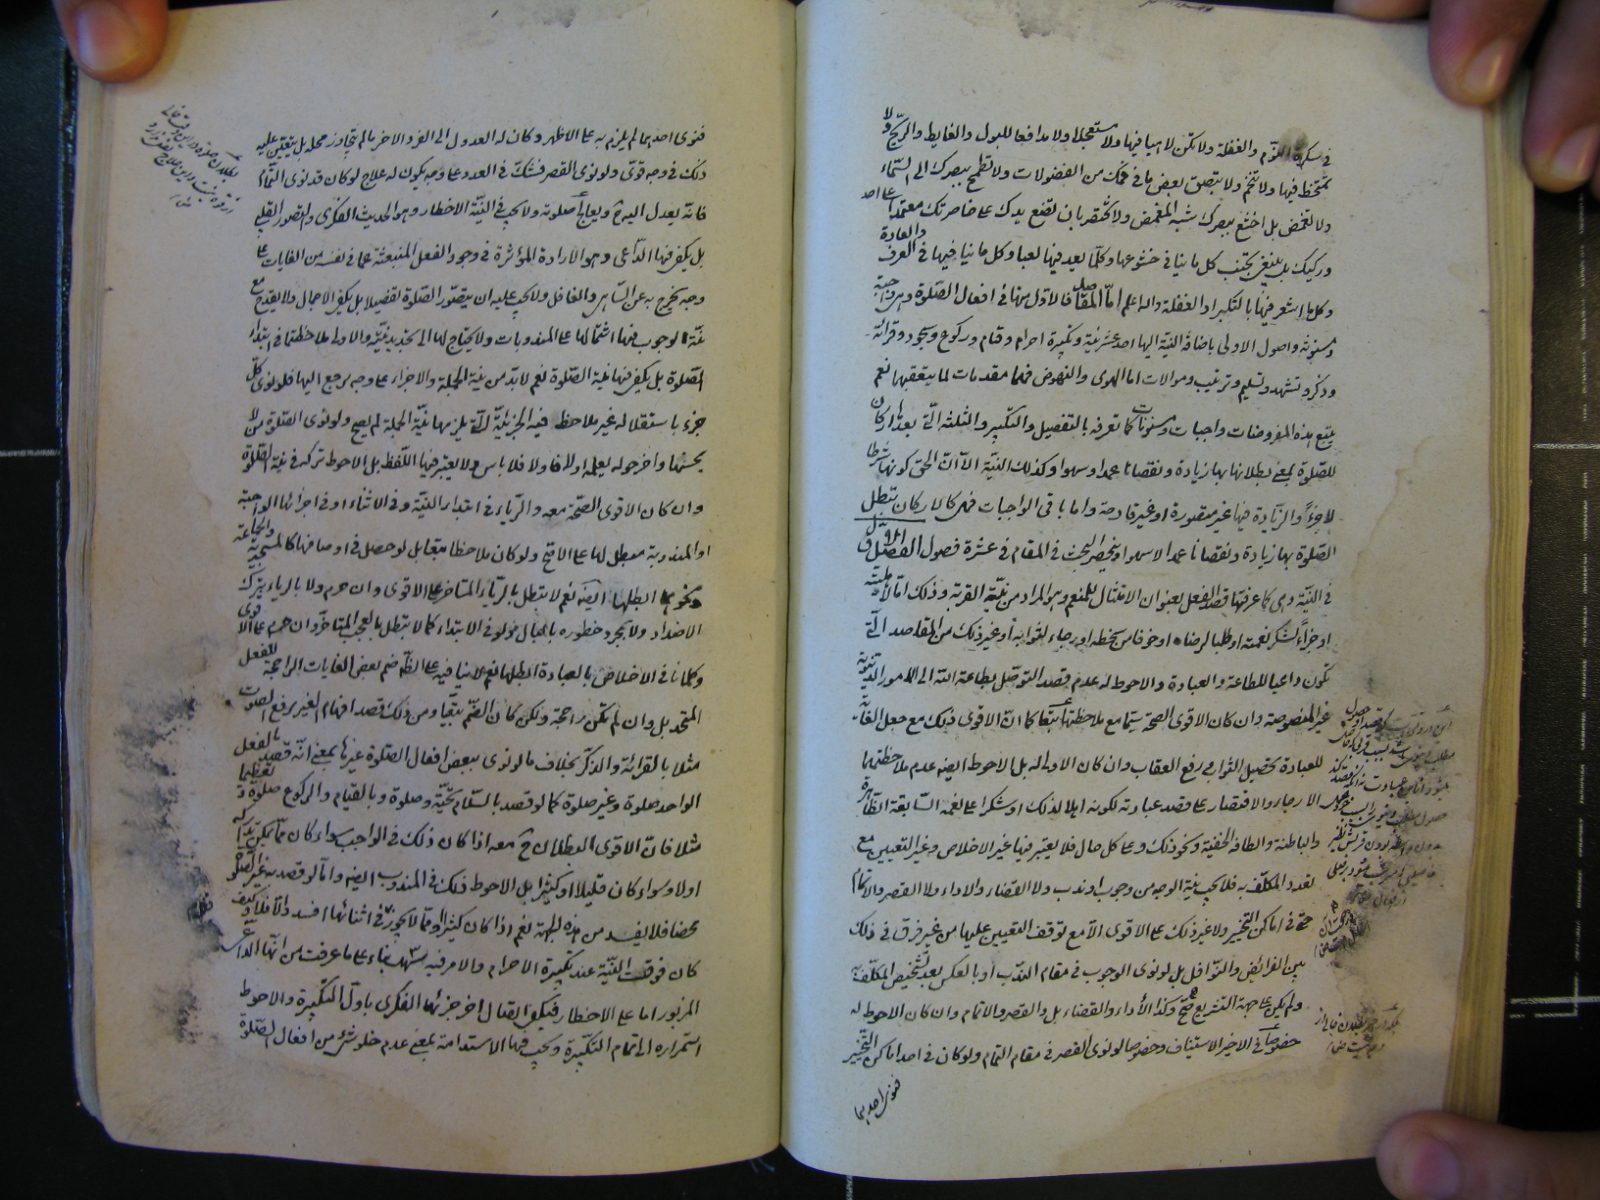 في سكرة النوم والغفلة ولا تكن لاهيا فيها ولا مستعجلا ولا مدافعا للبول والغايط والريح ولا
تمتخط فيها ولا تتنخم ولا تبصق بعض ما في فمك من الفضولات ولا تطمح ببصرك الى السماء
ولا تغمض بل اخشع ببصرك شبه المغمض ولا تختصر بان تضع يدك على خاصرتك معتمدا على احد
وركيك بل ينبغي تجتنب كل ما ينافي خشوعها وكلما يعد فيها لعبا وكل ما ينافيها في العرف والعادة
وكلما اشعر فيها بالتكبر او الغفلة والله اعلم اما المقاصد فالاول منها في افعال الصلوة وهي واجبة
ومسنونة واصول الاولى باضافة النية اليها احد عشر نية وتكبيرة احرام وقيام وركوع وسجود وقرائة
وذكر وتشهد وتسليم وترتيب وموالات اما الهوى والنهوض فهما مقدمات لما يتعقبها نعم
يتبع هذه المفروضات واجبات ومسنونات كما تعرفه بالتفصيل والتكبير والثلثة التي بعدها اركان
للصلوة بمعنى بطلانها بها زيادة ونقصانا عمدا وسهوا وكذلك النية الا ان الحق كونها شرطا
لا جزءا والزيادة فيها غير مقصورة او غير قادحة واما باقى الواجبات فهي كالاركان تبطل
الصلوة بها زيادة ونقصانا عمدا لا سهوا وينحصر البحث في المقام في عشرة فصول الفصل الاول
في النية وهي كما عرفتها قصد الفعل بعنوان الامتثال للمنعم وهو المراد من نية القربة وذلك اما لاهليته
او جزاء لشكر نعمته او طلبا لرضاه او خوفا من سخطه او رجاء لثوابه او غير ذلك من المقاصد التي
تكون داعيا للطاعة والعبادة والاحوط له عدم قصد التوصل بطاعة الله الى الامور الدنيوية
غير المنصوصة وان كان الاقوى الصحة سيما مع ملاحظتها تبعا كما ان الاقوى ذلك مع جعل الغاية
للعبادة تحصيل الثواب ورفع العقاب وان كان الاولى له بل الاحوط ايضه عدم ملاحظتهما
الا رجاء والاقتصار على قصد عبادته لكونه اهلا لذلك او شكرا على نعمه السابقة الظاهرة
والباطنة والطافه الخفية ونحو ذلك وعلى كل حال فلا يعتبر فيها غير الاخلاص وغير التعيين مع
تعدد المكلف به فلا يجب نية الوجه من وجوب او ندب ولا القضاء والاداء ولا القصر والاتمام
حتى في اماكن التخيير ولا غير ذلك على الاقوى الا مع توقف التعيين عليها من غير فرق في ذلك
بين الفرائض والنوافل بل لو نوى الوجوب في مقام الندب او بالعكس بعد تشخيص المكلف به
ولم يكن على جهة التشريع صح وكذا الأداء والقضاء بل والقصر والاتمام وان كان الاحوط له
خصوصا في الاخير الاستيناف وخصوصا لو نوى القصر في مقام التمام ولو كان في احد اماكن التخيير
فنوى احديهما
فنوى احديهما لم يلزم به على الاظهر وكان له العدول الى الفرد الاخر ما لم يتجاوز محله بل يتعين عليه
ذلك في وجه قوى ولو نوى القصر فشك في العدد على وجه يكون له علاج لو كان قد نوى التمام
فانه يعدل اليه ح ويعالج صلوته ولا يجب في النية الاخطار وهو الحديث الفكرى والتصور القلبي
بل يكفي فيها الداعى وهو الارادة المؤثرة في وجود الفعل المنبعثة عما في نفسه من الغايات على
وجه يخرج به عن الساهى والغافل ولا يجب عليه ان يتصور الصلوة تفصيلا بل يكفى الاجمال ولا يقدح مع
نية الوجوب فيها اشتمالها على المندوبات ولا يحتاج لها الى تجديد نية والاولى ملاحظتها في ابتداء
الصلوة بل يكفي فيها نية الصلوة نعم لابد من نية الجملة والاجزاء على وجه يرجع اليها فلو نوى كل
جزء باستقلاله غير ملاحظ فيه الجزئية التي يلزمها نية الجملة لم يصح ولو نوى الصلوة من لا
يحسنها واخر حوله يعلمه اولا فاولا فلا باس ولا يعتبر فيها اللفظ بل الاحوط تركه في نية الصلوة
وان كان الاقوى الصحة معه والرياء في ابتداء النية وفي الاثناء او في اجزائها الواجبة
او المندوبة مبطل لها على الاصح ولو كان ملاحظا بتعابل لو حصل في اوصافها كالمسجدية والجماعة
ونحوهما ابطلها ايضه نعم لا تبطل بالرياء المتاخر على الاقوى وان حرم ولا بالرياء بترك
الاضداد ولا بمجرد خطوره بالبال ولو في الابتداء كما لا تبطل بالعجب المتاخر وان حرم على الاقوى
وكلما نافى الاخلاص بالعبادة ابطلها نعم لا ينافيه على الظاهر ضم بعض الغايات الراجحة للفعل
المتحد بل وان لم تكن راجحة ولكن كان الضم تبعيا ومن ذلك قصد افهام الغير برفع الصوت
مثلا بالقرائة والذكر بخلاف ما لو نوى ببعض افعال الصلوة غيرها بمعنى انه قصد بالفعل
الواحد صلوة وغير صلوة كما لو قصد بالسلام تحية وصلوة وبالقيام والركوع صلوة وتعظيما
مثلا فان الاقوى البطلان ح معه اذا كان ذلك في الواجب سواء كان مما يمكن تداركه
اولا وسواء كان قليلا او كثيرا بل الاحوط ذلك في المندوب ايضه واما لو قصد به غير الصلوة
محضا فلا يفسد من هذه الجهة نعم اذا كان كثيرا ومما لا يجوز في اثنائها افسد والا فلا وكيف
كان فوقت النية عند تكبيرة الاحرام والامر فيه سهل بناء على ما عرفت من انها الداعى
المزبور اما على الاخطار فيكفى اتصال اخر جزئها الفكرى باول التكبيرة والاحوط
استمراره الى تمام التكبيرة وتجب فيها الاستدامة بمعنى عدم خلو شئ من افعال الصلوة